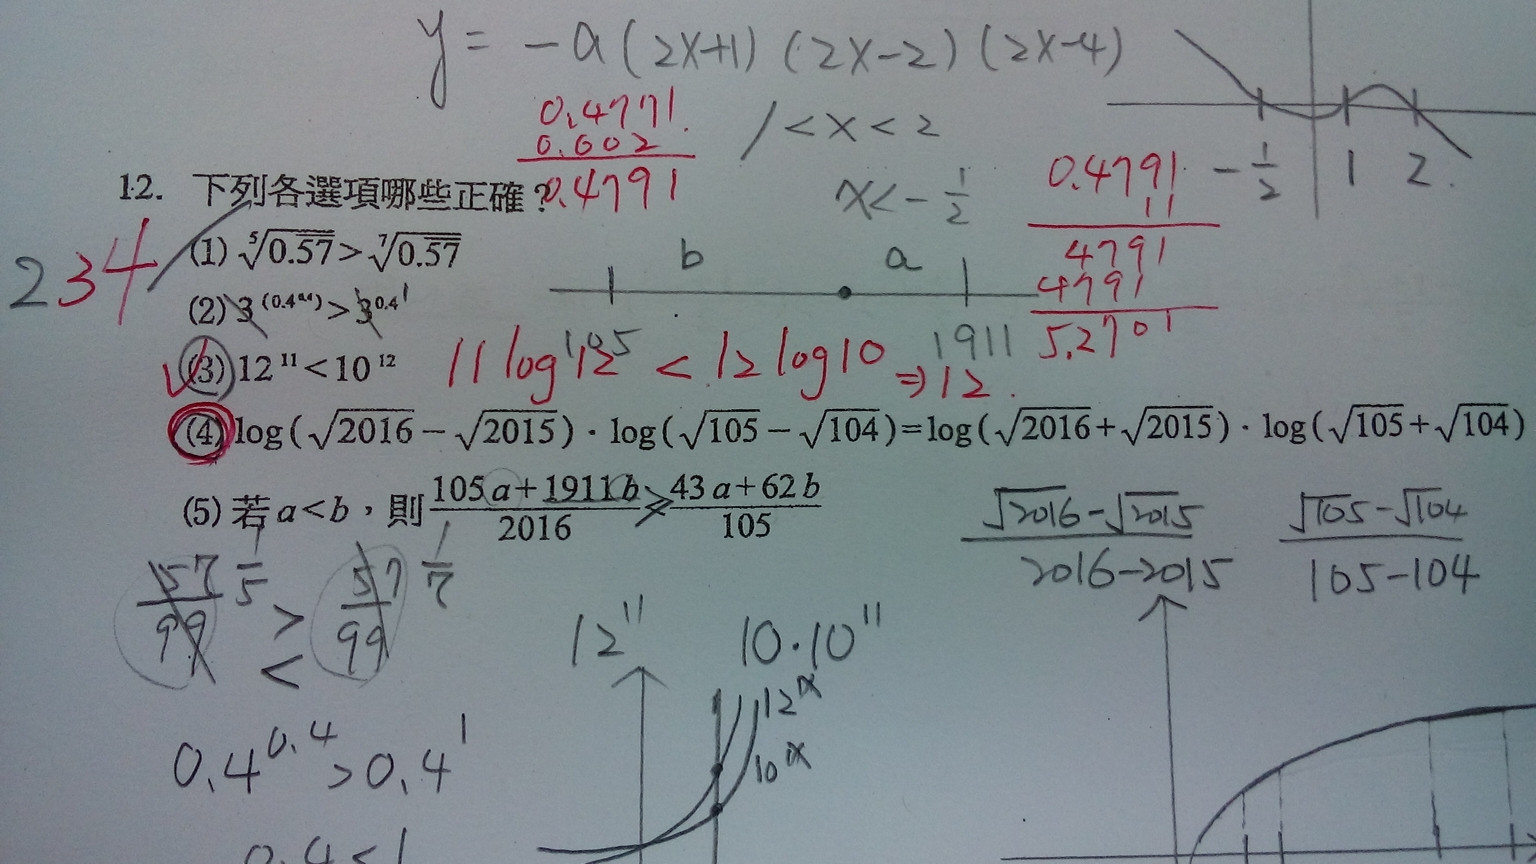 y = -a(2x+1)(2x-2)(2x-4)
0.4771
0.602
0.4791
1<x<2
x<-1/2
0.4791
11
4791
4791
5.2701
-1/2 1 2
12. 下列各選項哪些正確?
234
(1) ⁵√0.57 > ⁷√0.57
b a
(2) 3^(0.4^0.4) > 3^0.4 1
105 1911
(3) 12^11 < 10^12
11 log 12 < 12 log 10 ⇒ 12
(4) log(√2016 - √2015)·log(√105 - √104) = log(√2016 + √2015)·log(√105 + √104)
(5) 若 a<b,則 (105a+1911b)/2016 > (43a+62b)/105
(√2016-√2015)/(2016-2015) (√105-√104)/(105-104)
57/99 1/5 > < 57/99 1/7
12^11 10·10^11
12^x
10^x
0.4^0.4 > 0.4^1
0.4<1